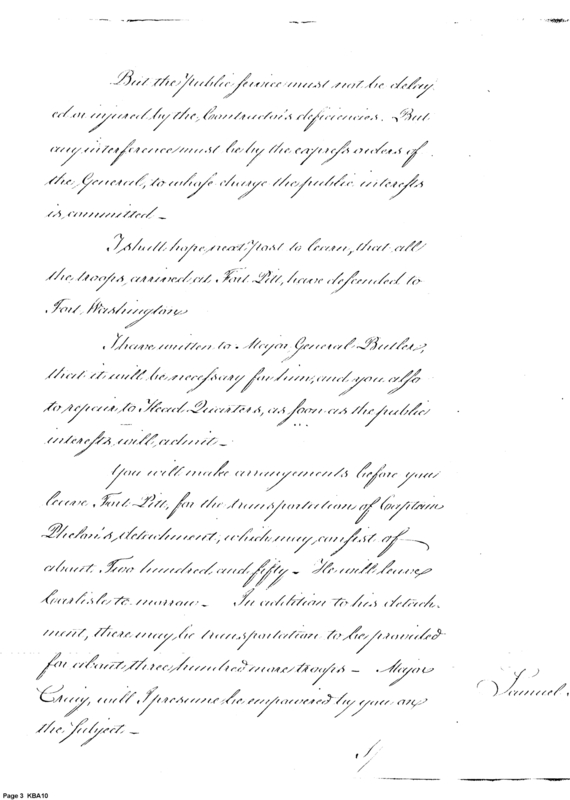 But the public service must not be delay
ed or injured by the Contractor's deficiencies. But
any interference must be by the express orders of
the General, to whose charge the public interests
is committed –
I shall hope next post to learn, that all
the troops, arrived at Fort Pitt, have descended to
Fort Washington
I have written to Major General Butler,
that it will be necessary for him, and you also
to repair to Head Quarters, as soon as the public
interests will admit –
You will make arrangements before you
leave Fort Pitt, for the transportation of Captain
Phelon's detachment, which may consist of
about Two hundred and fifty – He will leave
Carlisle to morrow – In addition to his detach-
ment, there may be transportation to be provided
for about three hundred more troops – Major
Craig, will I presume be empowered by you on
the Subject –
Samuel
Page 3 KBA10